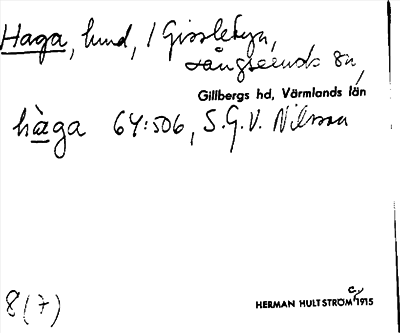 Haga, lund, / Gisslebyn,
Långseruds sn,
Gillbergs hd, Värmlands län
hàga 64:506, S.G.V. Nilsson
8(7)
HERMAN HULTSTRÖM 1915